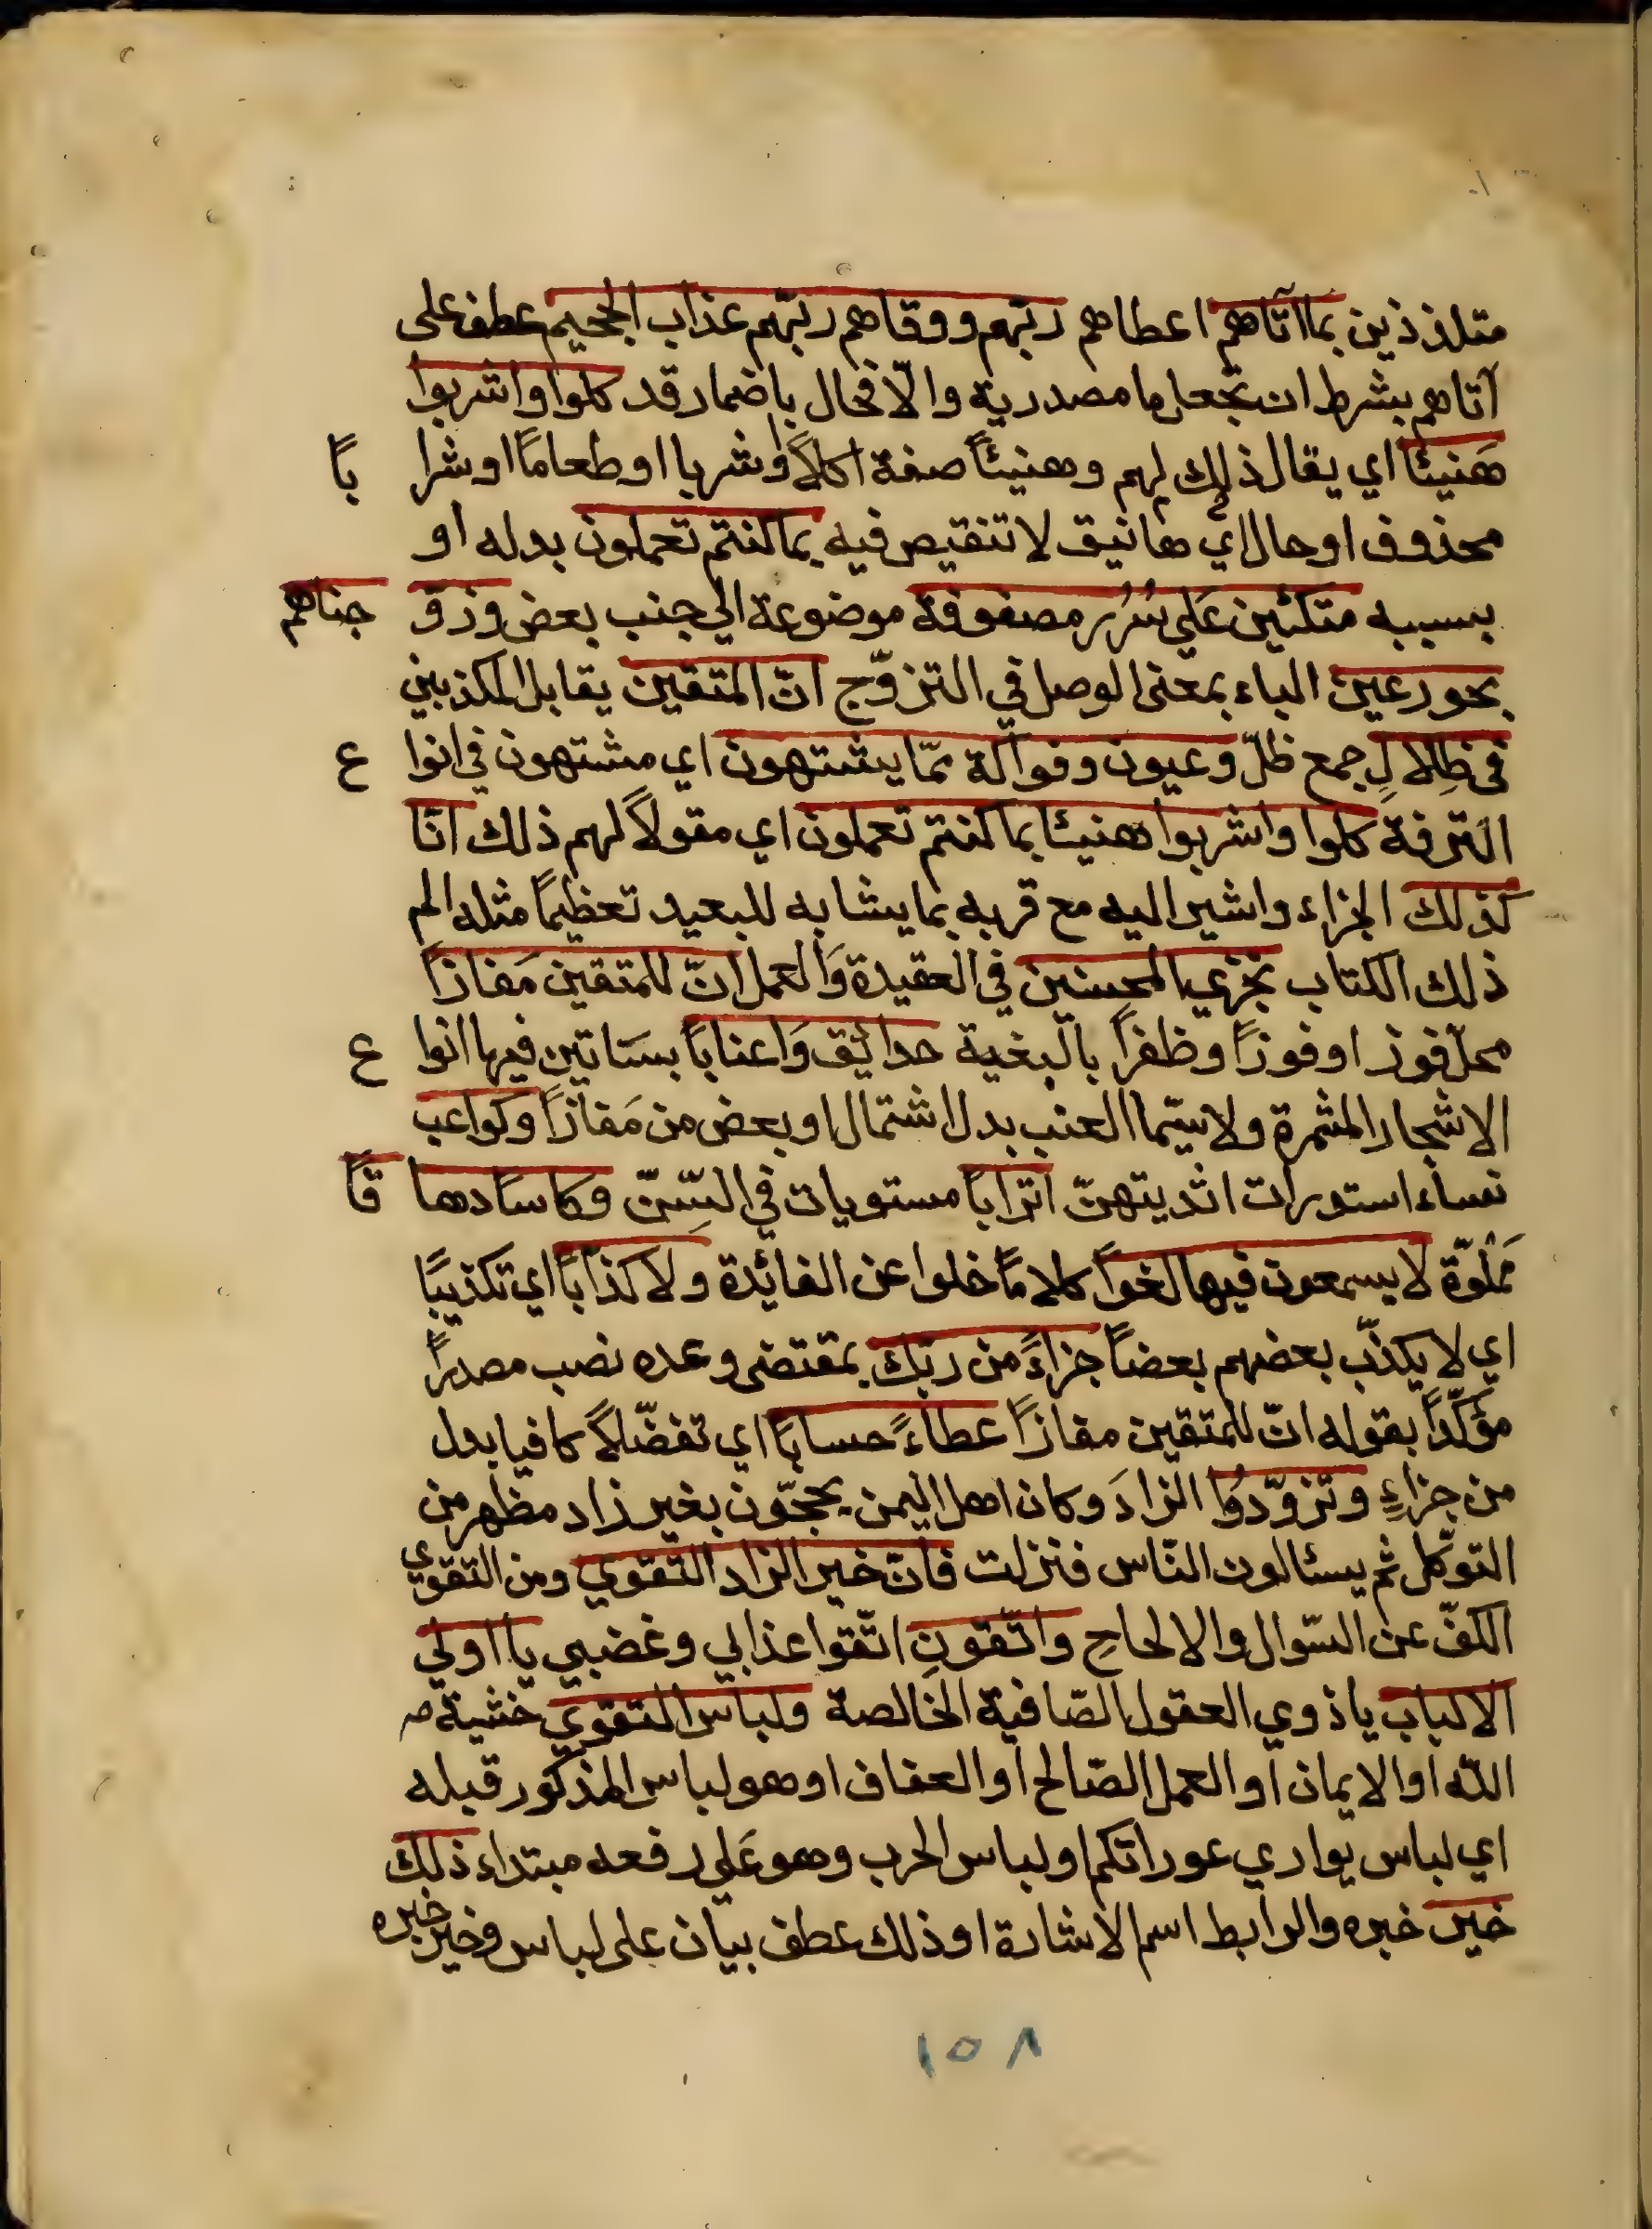 متلذذين بما آتاهم اعطاهم ربّهم ووقاهم ربّهم عذاب الجحيم عطف على
آتاهم بشرط ان تجعل ما مصدرية والّا فحال باضمار قد كلوا واشربوا
هَنيئاً اي يقال ذلك لهم وهنيئاً صفة اكلاً وشربا او طعاماً او شرا باً
محذوف او حال اي هانيق لا تنقيص فيه بما كنتم تعملون بدله او
بسببه متكئين عَلي سُرُر مصفوفة موضوعة الي جنب بعض وزوّ جناهم
بحور عين الباء بمعنى الوصل في التزوّج انّ المتقين يقابل المكذبين
في ظِلالٍ جمع ظلّ وعيون وفواكه ممّا يشتهون اي مشتهون في انوا ع
الترفة كلوا واشربوا هنيئا بما كنتم تعملون اي مقولاً لهم ذلك انّا
كذلك الجزاء واشير اليه مع قربه بما يشا به للبعيد تعظيماً مثله الم
ذلك الكتاب نجزي المحسنين في العقيدة وَالعمل انّ للمتقين مَفازاً
محلّ فوز او فوزاً وظفراً بالبغية حدائيق وَاعناباً بسَاتين فيها انوا ع
الاشجار المثمرة ولا سيّما العنب بدل اشتمال او بعض من مَفازاً وكواعب
نساء استورات اثديتهنّ اتراباً مستويات في السِّنّ وكاساً دها قاً
مَملوّة لا يسمعون فيها لغواً كلاماً خلوا عن الفائدة ولا كذاباً اي تكذيبًا
اي لا يكذّب بعضهم بعضاً جزاءً من ربّك بمقتضى وعده نصب مصدراً
مؤكّداً بقوله انّ للمتقين مفازاً عطاءً حساباً اي تفضّلاً كافيا بدل
من جزاءٍ وتزوّدُوا الزادَ وكان اهل اليمن يحجّون بغير زاد مظهر من
التوكّل ثم يسئالون النّاس فنزلت فانّ خير الزاد التّقوي ومن التقوي
الكفّ عن السّوال والالحاحِ واتّقونِ اتّقوا عذابي وغضبي يا اولي
الالباب يا ذوي العقول الصّافية الخالصة ولباس التقوي خشية
اللّه او الايمان او العمل الصّالح او العفاف او هو لباس المذكور قبله
اي لباس يواري عوراتكم او لباس الحرب وهو عَلي رفعه مبتداء ذلك
خير خبره والرابط اسم الاشارة او ذلك عطف بيان على لباس وخير خبره
١٥٨